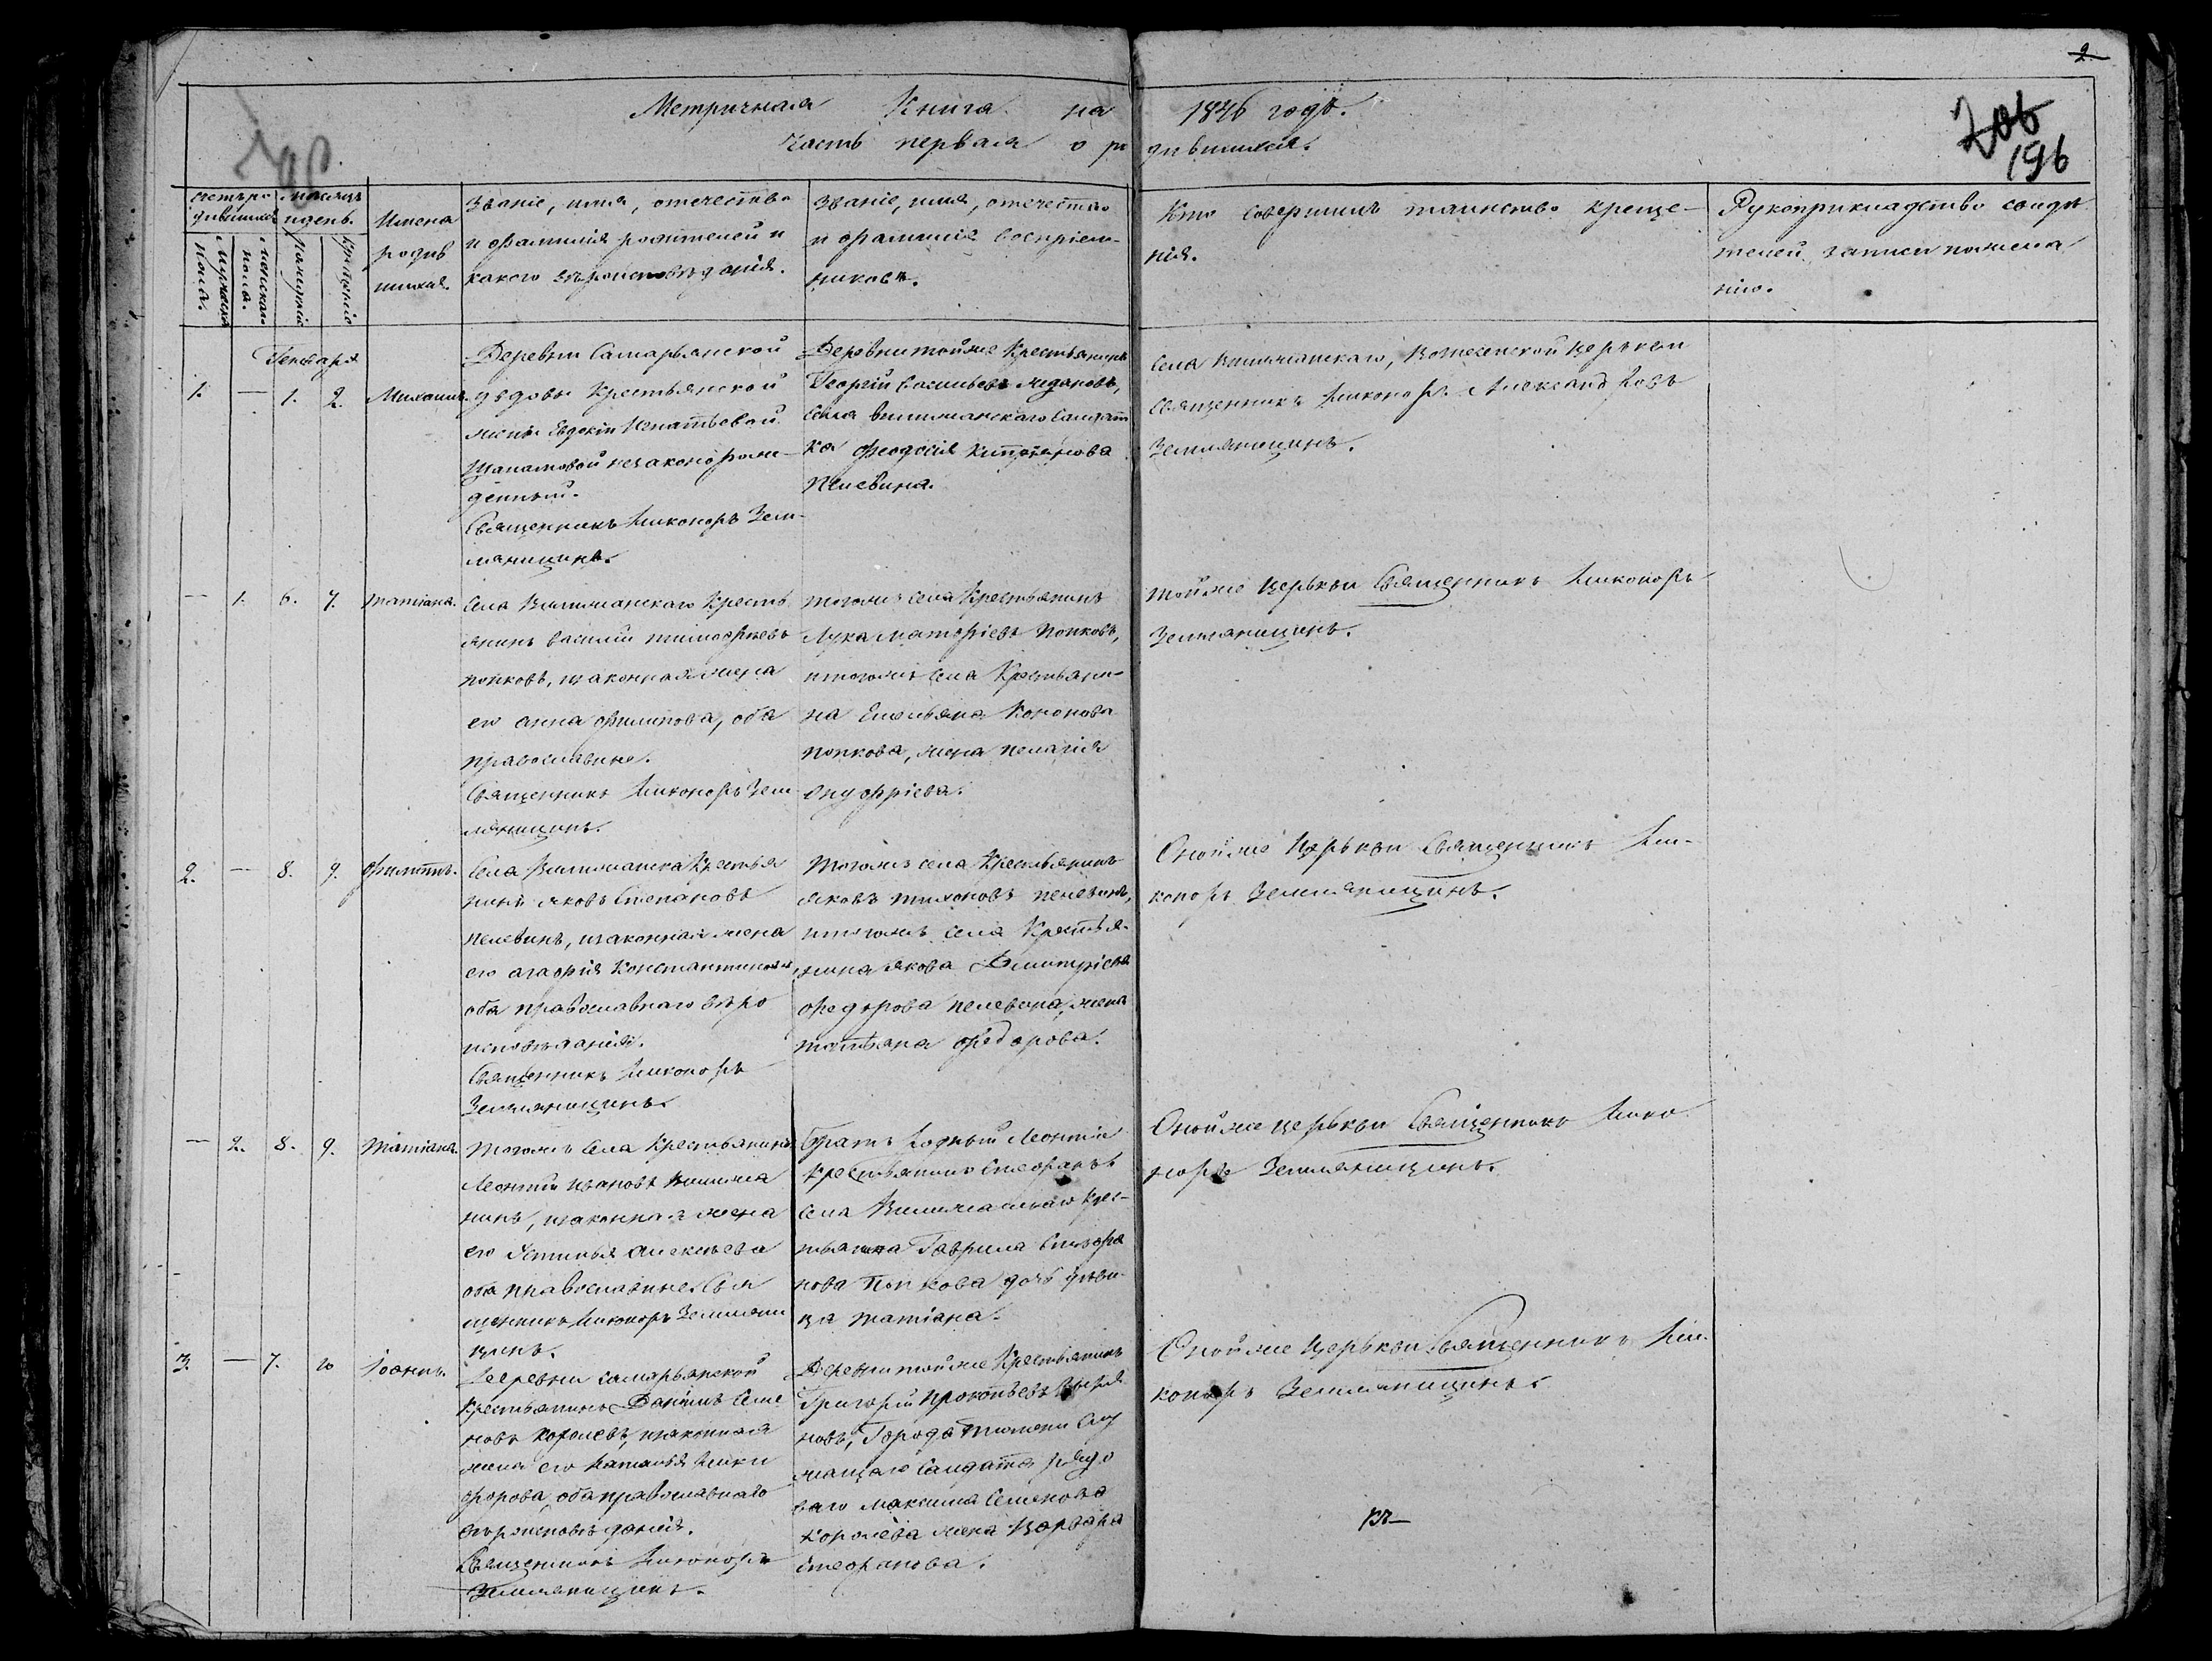 2
Метричная Книга на 1846 годъ.
Часть первая о родившихся.
206
196
счетъ родившихся
мѣсяцъ и день.
мужеска пола.
женска пола.
рожденія
крещенія
Имена
родив
шихся.
Званіе, имя, отечество
и фамилія родителей и
какого вѣроисповѣданія.
Званіе, имя, отечество
и фамилія воспріем-
никовъ.
Кто совершилъ таинство креще-
нія.
Рукоприкладство свидѣ
телей записи по жела
нію.
Генваря
1. — 1. 2. Михаилъ.
Деревни Самарьянской
вдовы Крестьянской
жены Евдокіи Игнатьевой
незаконорож-
денный.
Священникъ Никоноръ Зем-
ляницинъ.
Деревни тойже Крестьянинъ
Георгій Васильевъ
Села
ка Феодосія
Пелевина.
Села церькви
священникъ Никоноръ Александровъ
Земляницинъ.
— 1. 6. 7. Татіана.
Села Крестья
янинъ Василій Тимофѣевъ
Попковъ, и законная жена
его Анна Филипова, оба
православные.
Священникъ Никоноръ Зем
ляницинъ.
тогожъ села Крестьянинъ
Лука Попковъ,
и тогожъ села Крестьяни-
на Емельяна Кононова
Попкова, жена Пелагія
Онуфріева.
тойже церькви Священникъ Никоноръ
Земляницинъ.
2. — 8. 9. Филиппъ.
Села Крестья
нинъ Яковъ Степановъ
Пелевинъ, и законная жена
его Агафія Константинова,
оба православнаго вѣро
исповѣданія.
Священникъ Никоноръ
Земляницинъ.
Тогожъ села Крестьянинъ
Яковъ Тихоновъ Пелевинъ,
и тогожъ села Крестья-
нина Якова Димитріева
Федорова Пелевина, жена
Татьяна Федорова.
Онойже церькви Священникъ Ни-
коноръ Земляницинъ.
— 2. 8. 9. Татіана.
Тогожъ Села Крестьянинъ
Леонтій Ивановъ
нинъ, и законная жена
его Устинья Алексѣева
оба православные. Свя
щенникъ Никоноръ Земляни
цинъ.
Братъ родный Леонтія
Крестьянинъ Стефанъ
Села Крес-
тьянина Гаврила Стефа
нова Попкова дочь дѣви-
ца Татіана.
Онойже церькви Священникъ Нико
норъ Земляницинъ.
3. — 7. 10 Іоаннъ.
Деревни Самарьянской
Крестьянинъ Данилъ Семе
новъ Королевъ, и законная
жена его Наталья Ники
форова, оба православнаго
вѣроисповѣданія.
Священникъ Никоноръ
Земляницинъ.
Деревни тойже Крестьянинъ
Григорій Прокопьевъ
новъ, Города Тюмени слу
жащаго Салдата рядо
ваго Максима Семенова
Королева жена Варвара
Стефанова.
Онойже церькви Священникъ Ни-
коноръ Земляницинъ.